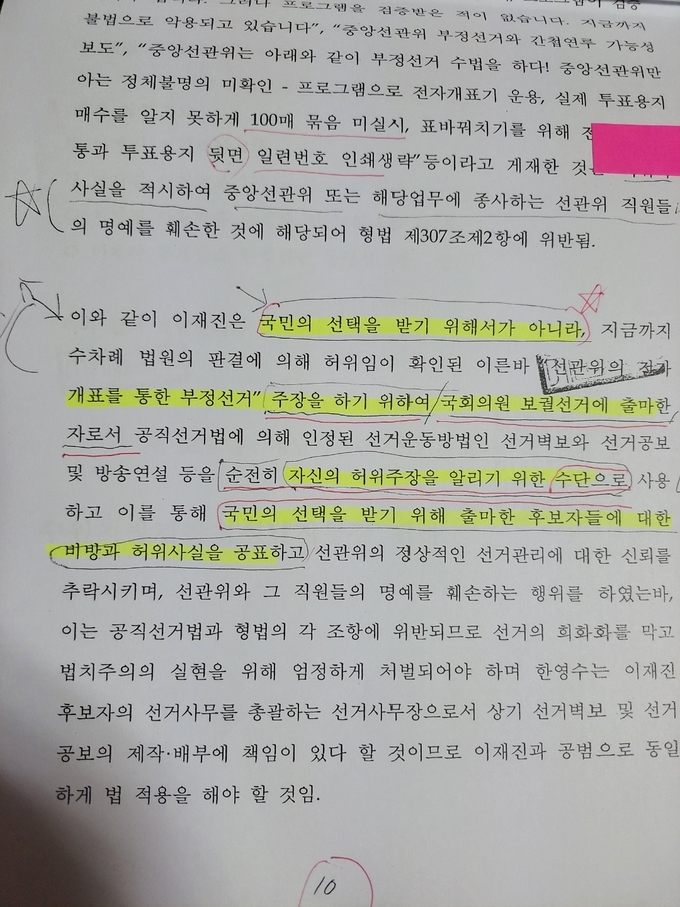 니다. 그러나 프로그램을 검증받은 적이 없습니다. 지금까지
불법으로 악용되고 있습니다”, “중앙선관위 부정선거와 간첩연루 가능성
보도”, “중앙선관위는 아래와 같이 부정선거 수법을 하다! 중앙선관위만
아는 정체불명의 미확인 - 프로그램으로 전자개표기 운용, 실제 투표용지
매수를 알지 못하게 100매 묶음 미실시, 표바꿔치기를 위해
통과 투표용지 뒷면 일련번호 인쇄생략”등이라고 게재한 것은
사실을 적시하여 중앙선관위 또는 해당업무에 종사하는 선관위 직원들
의 명예를 훼손한 것에 해당되어 형법 제307조제2항에 위반됨.
이와 같이 이재진은 국민의 선택을 받기 위해서가 아니라, 지금까지
수차례 법원의 판결에 의해 허위임이 확인된 이른바 “선관위의 전자
개표를 통한 부정선거” 주장을 하기 위하여 국회의원 보궐선거에 출마한
자로서 공직선거법에 의해 인정된 선거운동방법인 선거벽보와 선거공보
및 방송연설 등을 순전히 자신의 허위주장을 알리기 위한 수단으로 사용
하고 이를 통해 국민의 선택을 받기 위해 출마한 후보자들에 대한
비방과 허위사실을 공표하고 선관위의 정상적인 선거관리에 대한 신뢰를
추락시키며, 선관위와 그 직원들의 명예를 훼손하는 행위를 하였는바,
이는 공직선거법과 형법의 각 조항에 위반되므로 선거의 희화화를 막고
법치주의의 실현을 위해 엄정하게 처벌되어야 하며 한영수는 이재진
후보자의 선거사무를 총괄하는 선거사무장으로서 상기 선거벽보 및 선거
공보의 제작·배부에 책임이 있다 할 것이므로 이재진과 공범으로 동일
하게 법 적용을 해야 할 것임.
10